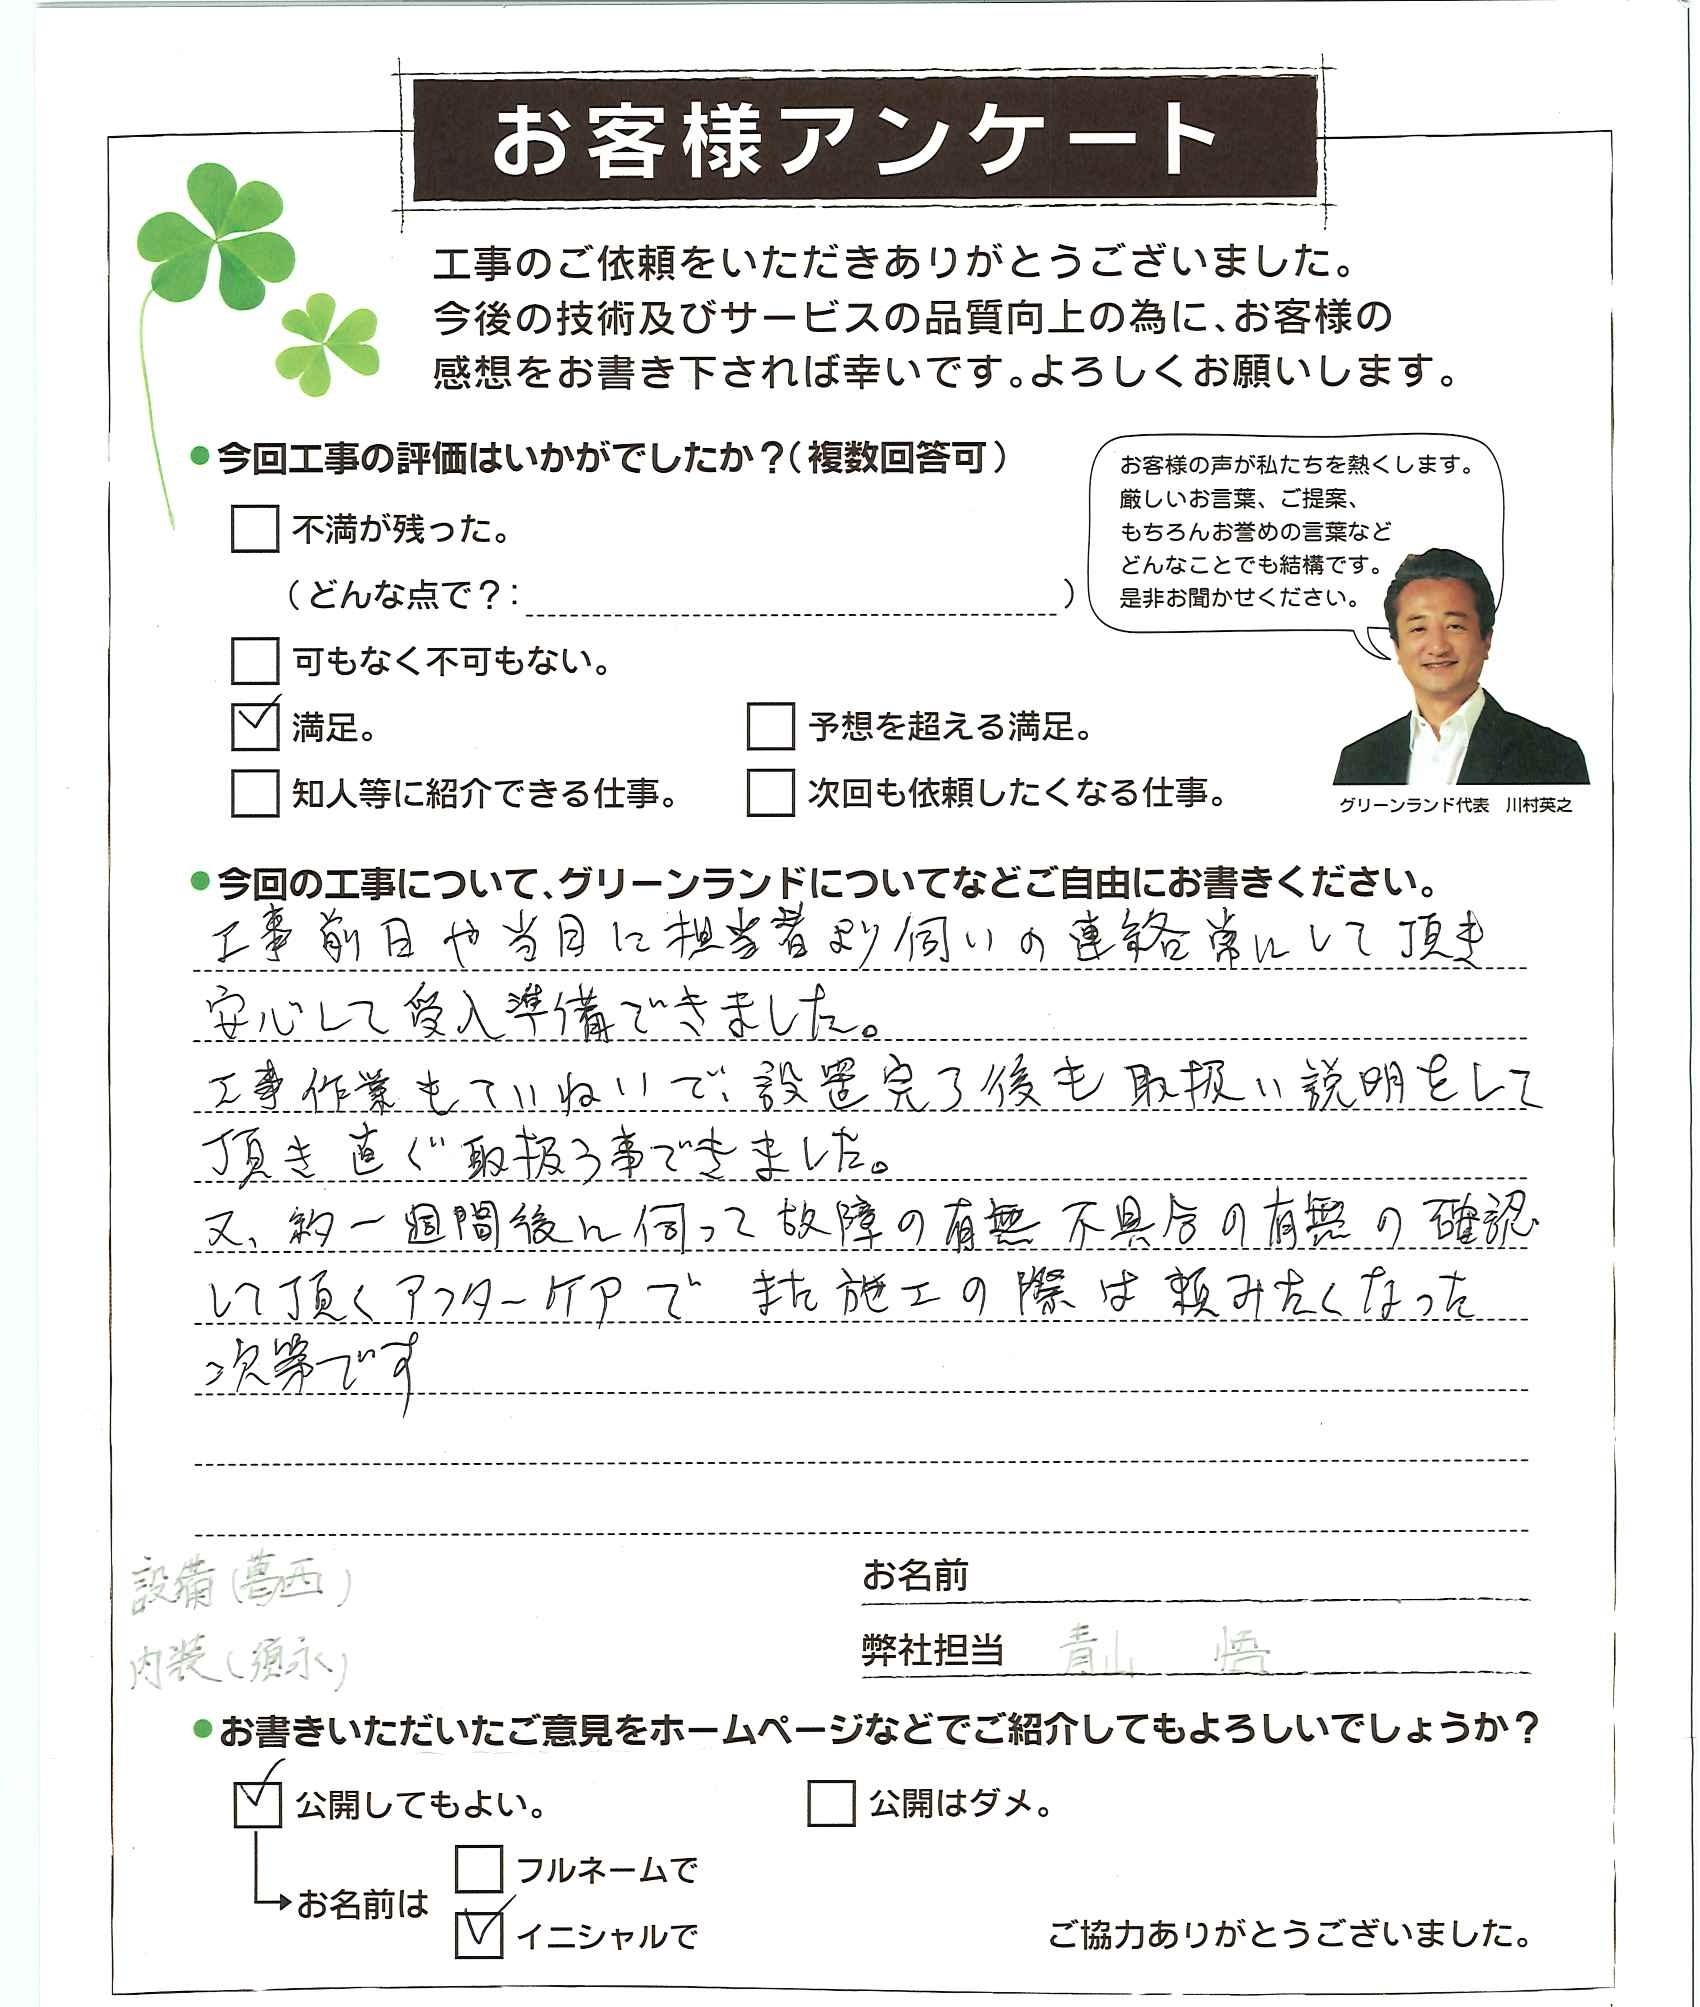 お客様アンケート
工事のご依頼をいただきありがとうございました。
今後の技術及びサービスの品質向上の為に、お客様の
感想をお書き下されば幸いです。よろしくお願いします。
●今回工事の評価はいかがでしたか？（複数回答可）
不満が残った。
（どんな点で？：　）
可もなく不可もない。
満足。
予想を超える満足。
知人等に紹介できる仕事。
次回も依頼したくなる仕事。
お客様の声が私たちを熱くします。
厳しいお言葉、ご提案、
もちろんお誉めの言葉など
どんなことでも結構です。
是非お聞かせください。
グリーンランド代表　川村英之
●今回の工事について、グリーンランドについてなどご自由にお書きください。
工事前日や当日に担当者より伺いの連絡常にして頂き
安心して受入準備できました。
工事作業もていねいで、設置完了後も取扱い説明をして
頂き直ぐ取扱う事できました。
又、約一週間後に伺って故障の有無不具合の有無の確認
して頂くアフターケアで また施工の際は頼みたくなった
次第です
設備（葛西）
内装（須永）
お名前
弊社担当　青山　悟
●お書きいただいたご意見をホームページなどでご紹介してもよろしいでしょうか？
公開してもよい。
公開はダメ。
お名前は
フルネームで
イニシャルで
ご協力ありがとうございました。